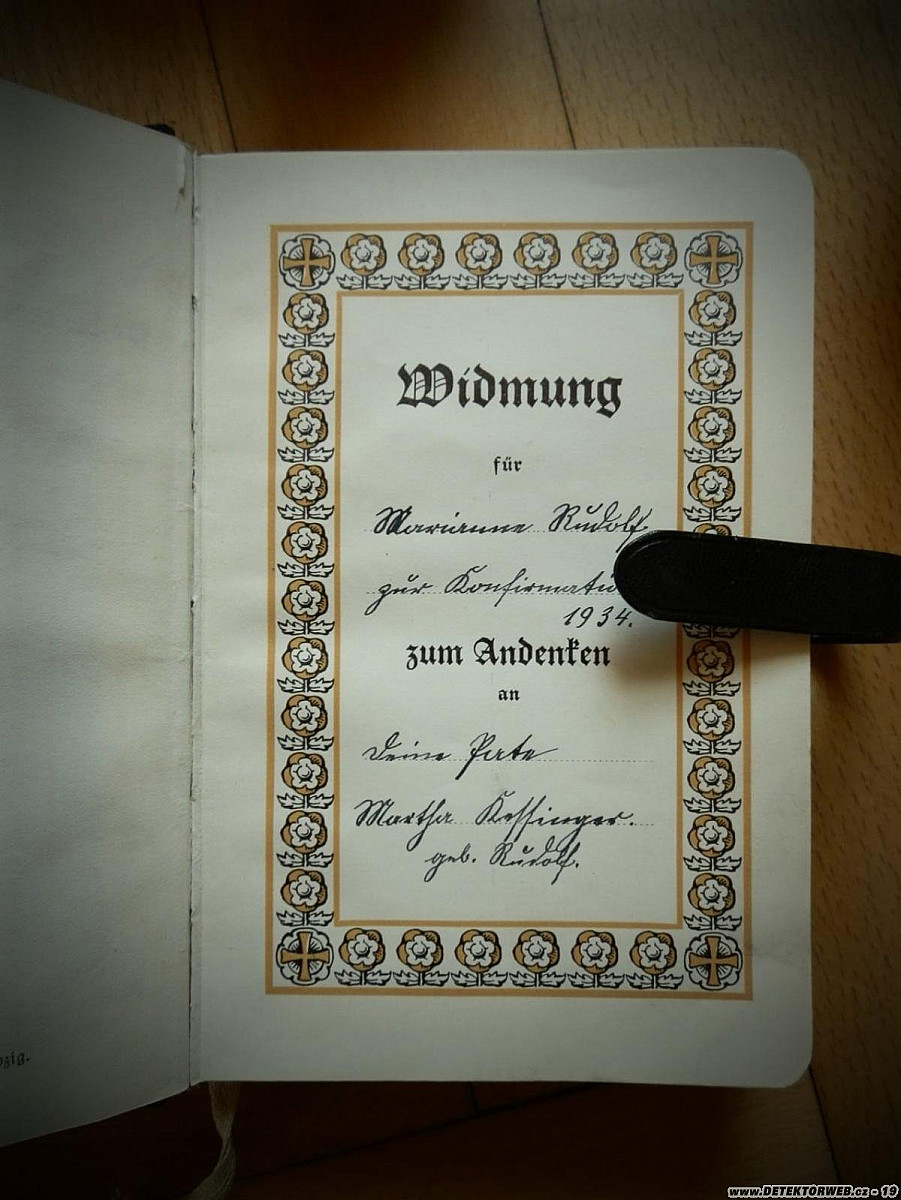 Widmung
für
Marianne Rudolf
zur Konfirmatio
1934.
zum Andenken
an
Deine Pate
Martha Kessinger.
geb. Rudolf.
zig.
www.DETEKTORWEB.cz - 19